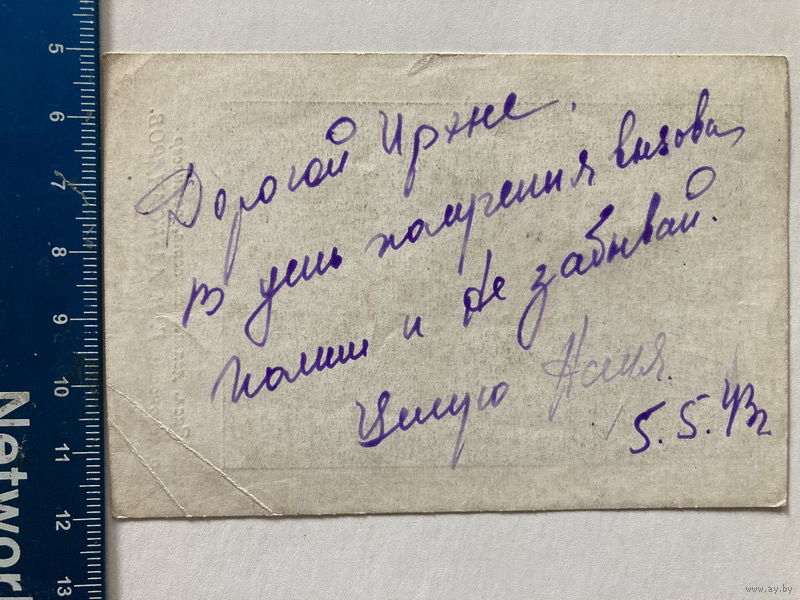 Дорогой Ирэне.
В день получения вызова,
помни и не забывай.
Целую Н
5.5.43г
5
6
7
8
9
10
11
12
13
Network
www.ay.by